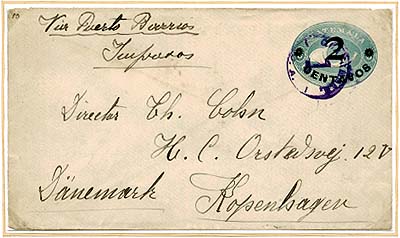 Via Puerto Barrios
Impresos
GUATEMALA
2
CENTAVOS
Director Th. Cohn
H. C. Orstedsvej 12 V
Dänemark
Kopenhagen